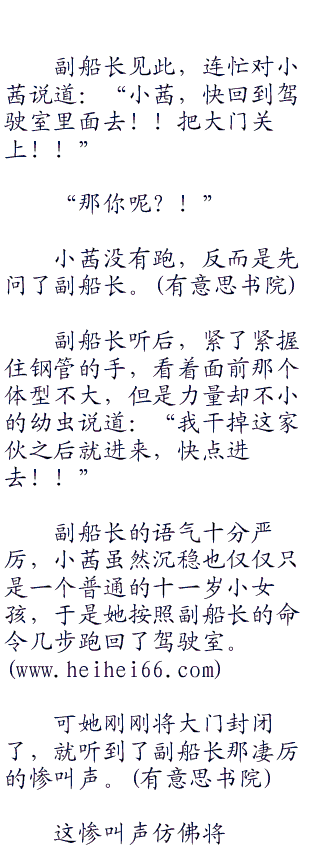 副船长见此，连忙对小
茜说道：“小茜，快回到驾
驶室里面去！！把大门关
上！！”
“那你呢？！”
小茜没有跑，反而是先
问了副船长。(有意思书院)
副船长听后，紧了紧握
住钢管的手，看着面前那个
体型不大，但是力量却不小
的幼虫说道：“我干掉这家
伙之后就进来，快点进
去！！”
副船长的语气十分严
厉，小茜虽然沉稳也仅仅只
是一个普通的十一岁小女
孩，于是她按照副船长的命
令几步跑回了驾驶室。
(www.heihei66.com)
可她刚刚将大门封闭
了，就听到了副船长那凄厉
的惨叫声。(有意思书院)
这惨叫声仿佛将